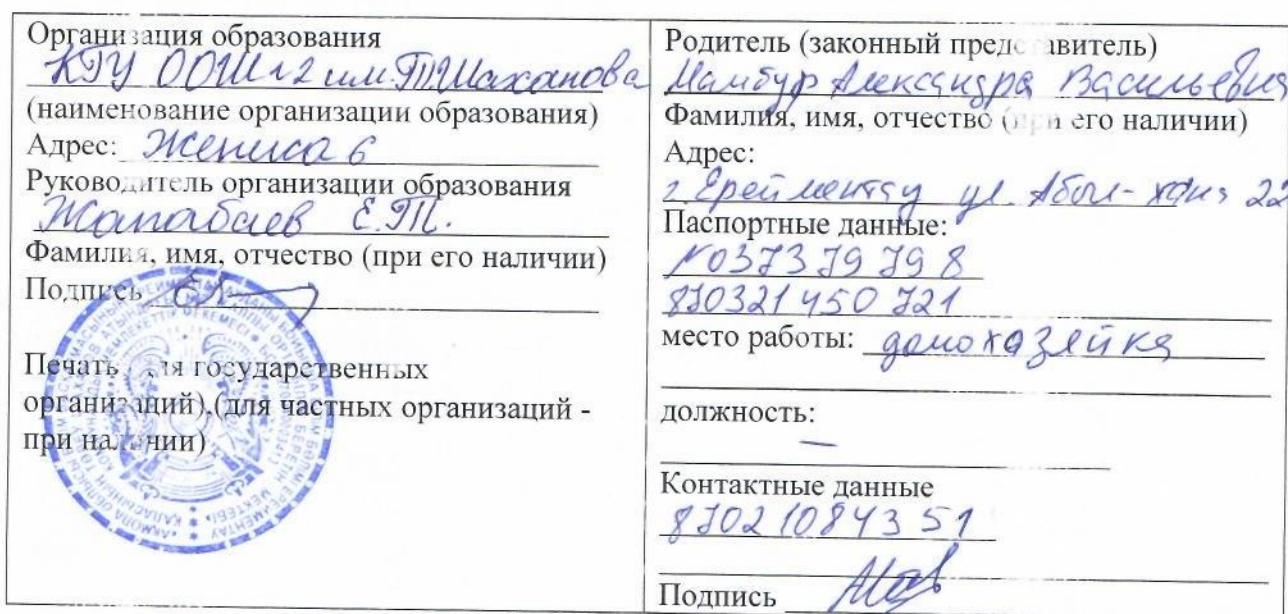 Организация образования
КГУ ООШ№2 им.Т.Шаханова
(наименование организации образования)
Адрес: Жениса 6
Руководитель организации образования
Жапабаев Е.Т.
Фамилия, имя, отчество (при его наличии)
Подпись
Печать для государственных
организаций),(для частных организаций -
при наличии)
Родитель (законный представитель)
Мамбур Александра Васильевна
Фамилия, имя, отчество (при его наличии)
Адрес:
г. Ерейментау ул. Абыл-хана 22
Паспортные данные:
№037379798
870321450721
место работы: домохозяйка
должность:
—
Контактные данные
87021084351
Подпись